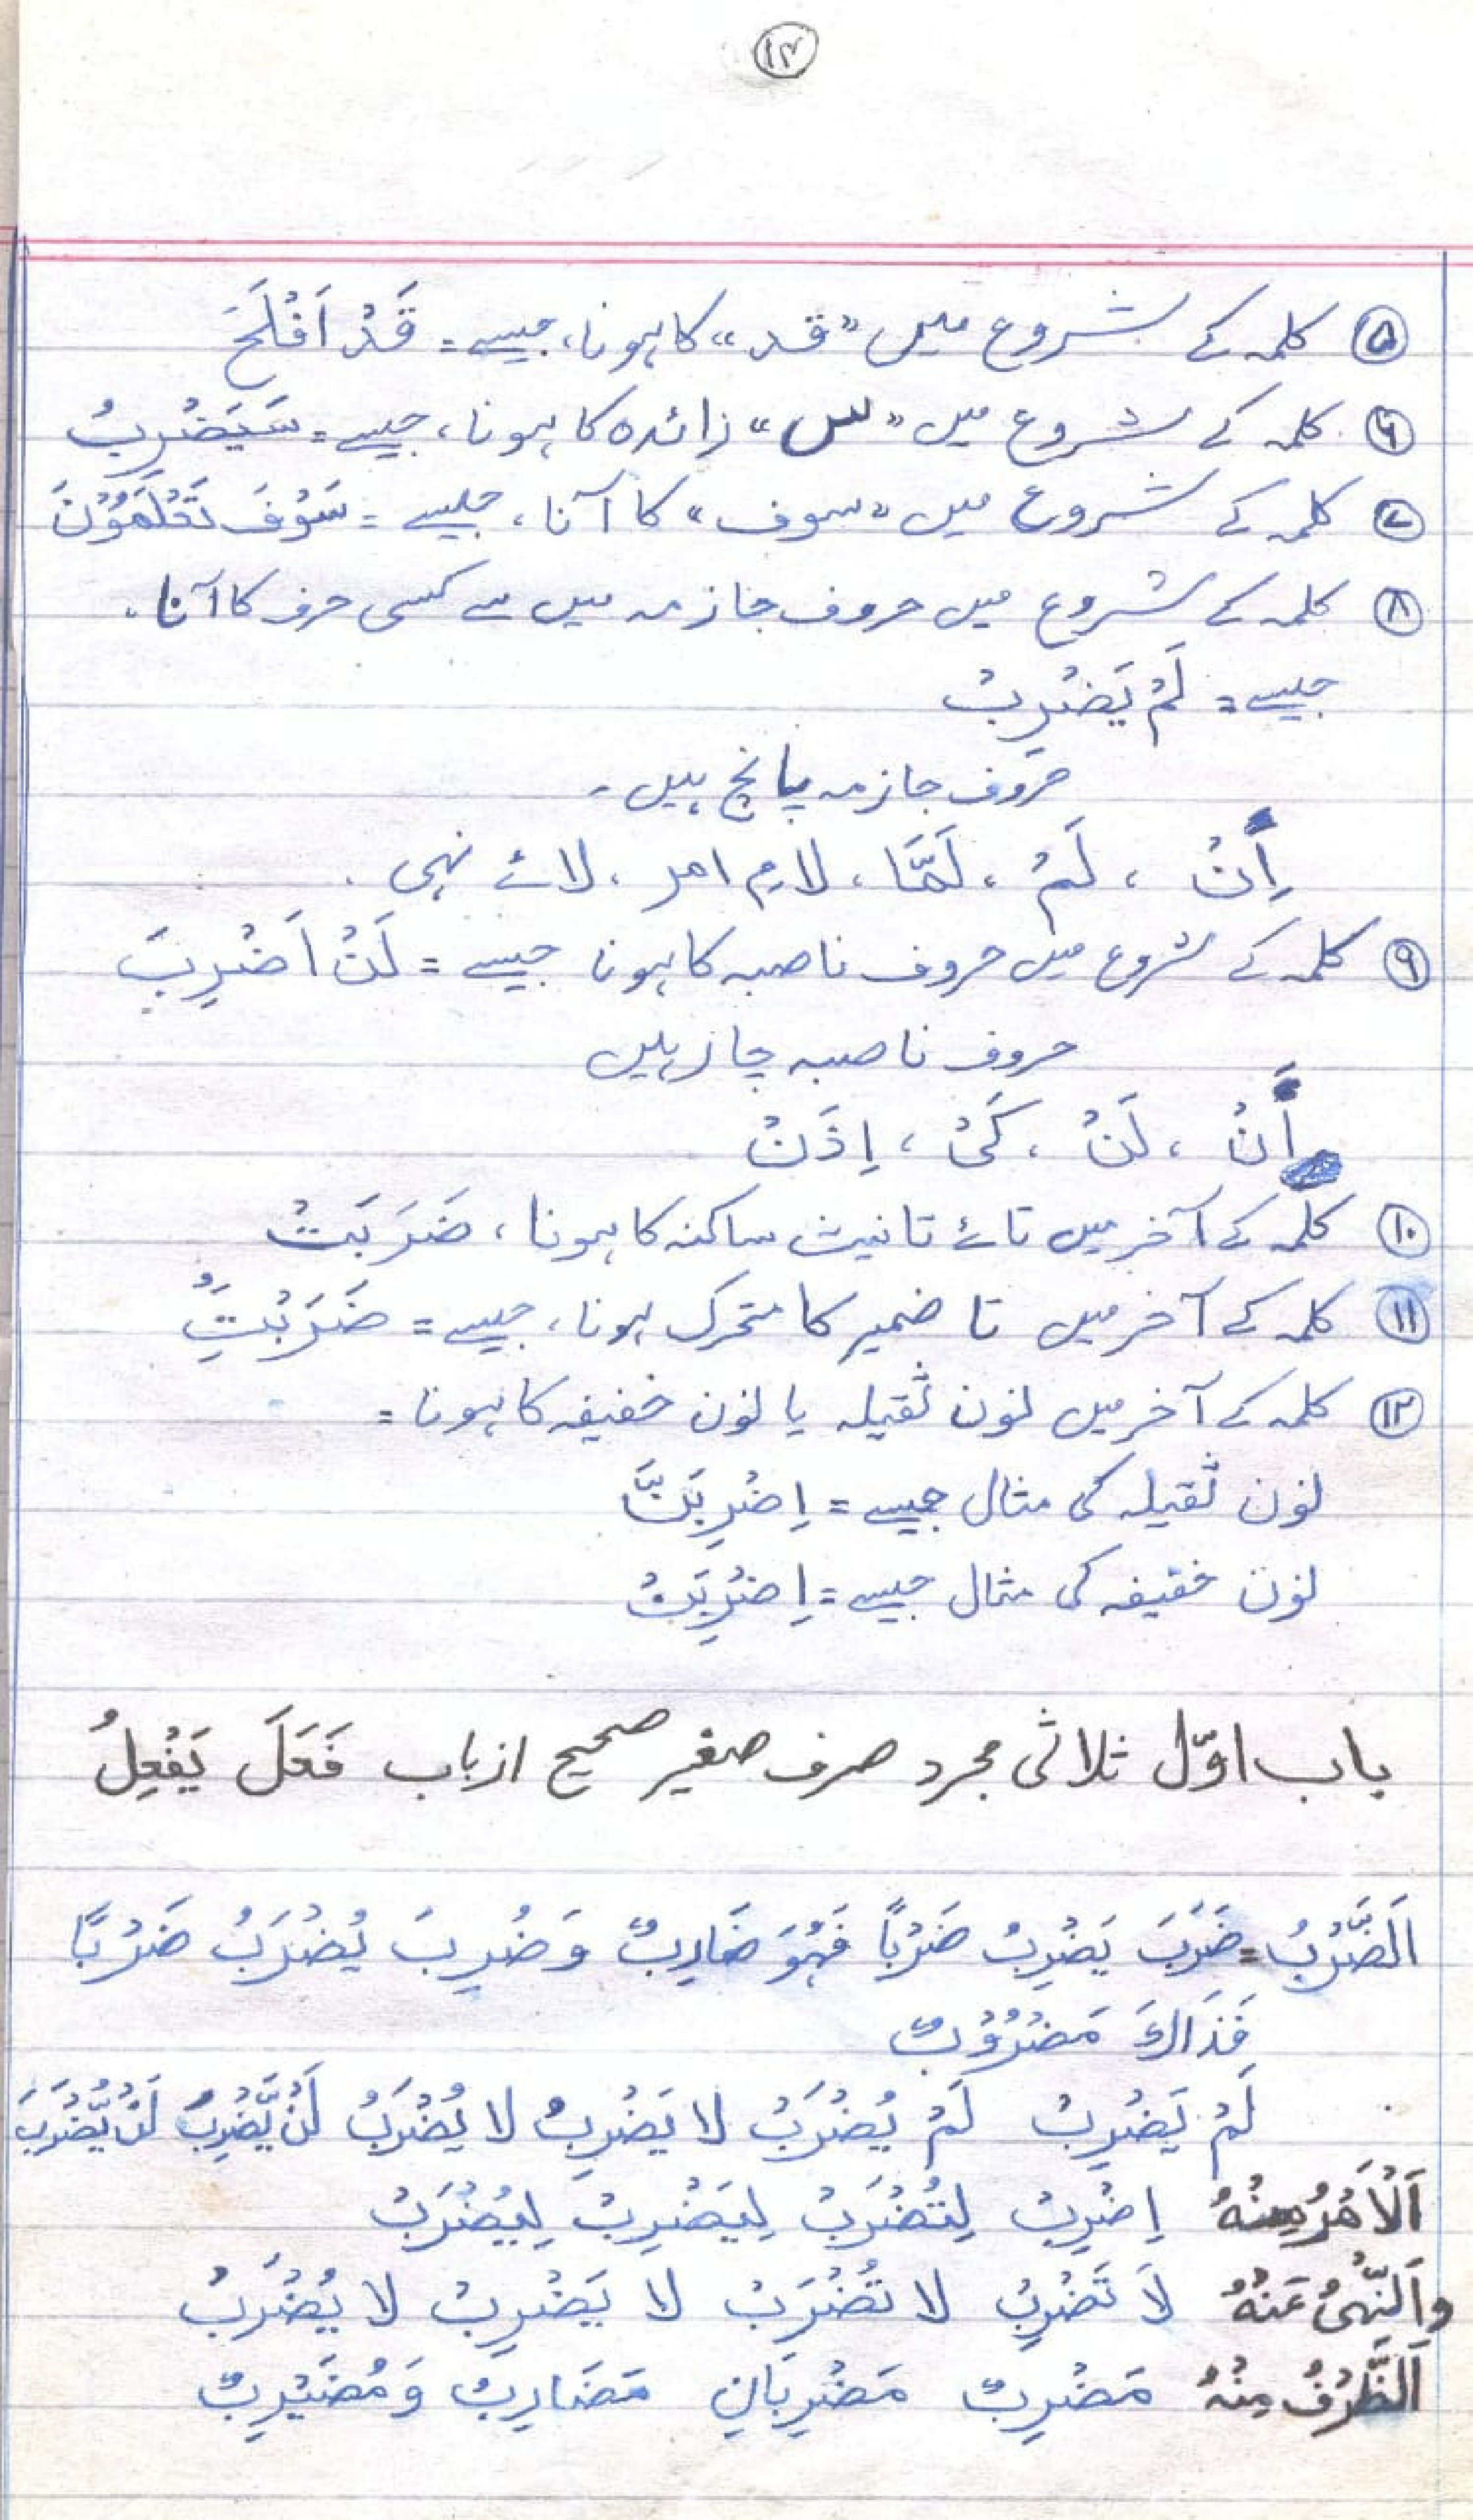 ۱۳
۵ کلمہ کے شروع میں "قد" کا ہونا، جیسے = قَدْ اَفْلَحَ
۶ کلمہ کے شروع میں "س" زائدہ کا ہونا، جیسے = سَیَضْرِبُ
۷ کلمہ کے شروع میں "سوف" کا آنا، جیسے = سَوْفَ تَعْلَمُوْنَ
۸ کلمہ کے شروع میں حروف جازمہ میں سے کسی حرف کا آنا۔
جیسے = لَمْ یَضْرِبْ
حروف جازمہ پانچ ہیں۔
اِنْ ، لَمْ ، لَمَّا ، لام امر ، لائے نہی ۔
۹ کلمہ کے شروع میں حروف ناصبہ کا ہونا جیسے = لَنْ اَضْرِبَ
حروف ناصبہ چار ہیں
اَنْ ، لَنْ ، کَیْ ، اِذَنْ
۱۰ کلمہ کے آخر میں تائے تانیث ساکنہ کا ہونا، ضَرَبَتْ
۱۱ کلمہ کے آخر میں تا ضمیر کا متحرک ہونا، جیسے = ضَرَبْتَُِ
۱۲ کلمہ کے آخر میں نون ثقیلہ یا نون خفیفہ کا ہونا =
نون ثقیلہ کی مثال جیسے = اِضْرِبَنَّ
نون خفیفہ کی مثال جیسے = اِضْرِبَنْ
باب اوّل ثلاثی مجرد صرف صغیر صحیح از باب فَعَلَ یَفْعِلُ
اَلضَّرْبُ = ضَرَبَ یَضْرِبُ ضَرْبًا فَہُوَ ضَارِبٌ وَضُرِبَ یُضْرَبُ ضَرْبًا
فَذَاکَ مَضْرُوْبٌ
لَمْ یَضْرِبْ لَمْ یُضْرَبْ لا یَضْرِبُ لا یُضْرَبُ لَنْ یَّضْرِبَ لَنْ یُّضْرَبَ
اَلْاَمْرُ مِنْہُ اِضْرِبْ لِتُضْرَبْ لِیَضْرِبْ لِیُضْرَبْ
واَلنَّہْیُ عَنْہُ لَا تَضْرِبْ لا تُضْرَبْ لا یَضْرِبْ لا یُضْرَبْ
اَلظَّرْفُ مِنْہُ مَضْرِبٌ مَضْرِبَانِ مَضَارِبُ وَمُضَیْرِبٌ